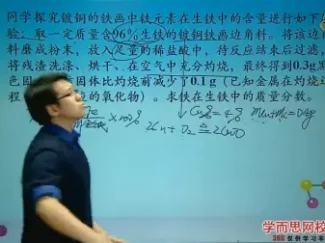 同学探究镀铜的铁画中铁元素在生铁中的含量进行如下
验：取一定质量含96%生铁的镀铜铁画边角料。将该边
料磨成粉末，放入足量的稀盐酸中，待反应结束后过滤，
将残渣洗涤、烘干、在空气中充分灼烧，最终得到0.3g黑
色固 固体比灼烧前减少了0.1g（已知金属在灼烧过
程 的氧化物）。求铁在生铁中的质量分数。
×100%
2Cu+O₂ 2CuO
学而思网校